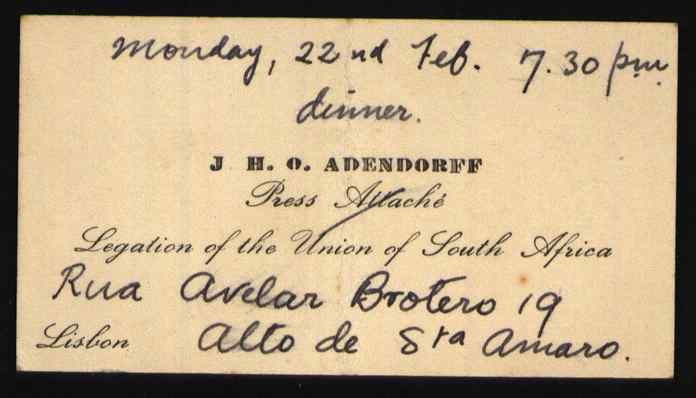 Monday, 22nd Feb. 7.30 pm.
dinner.
J H. O. ADENDORFF
Press Attaché
Legation of the Union of South Africa
Rua Avelar Brotero 19
Lisbon Alto de Sta Amaro.